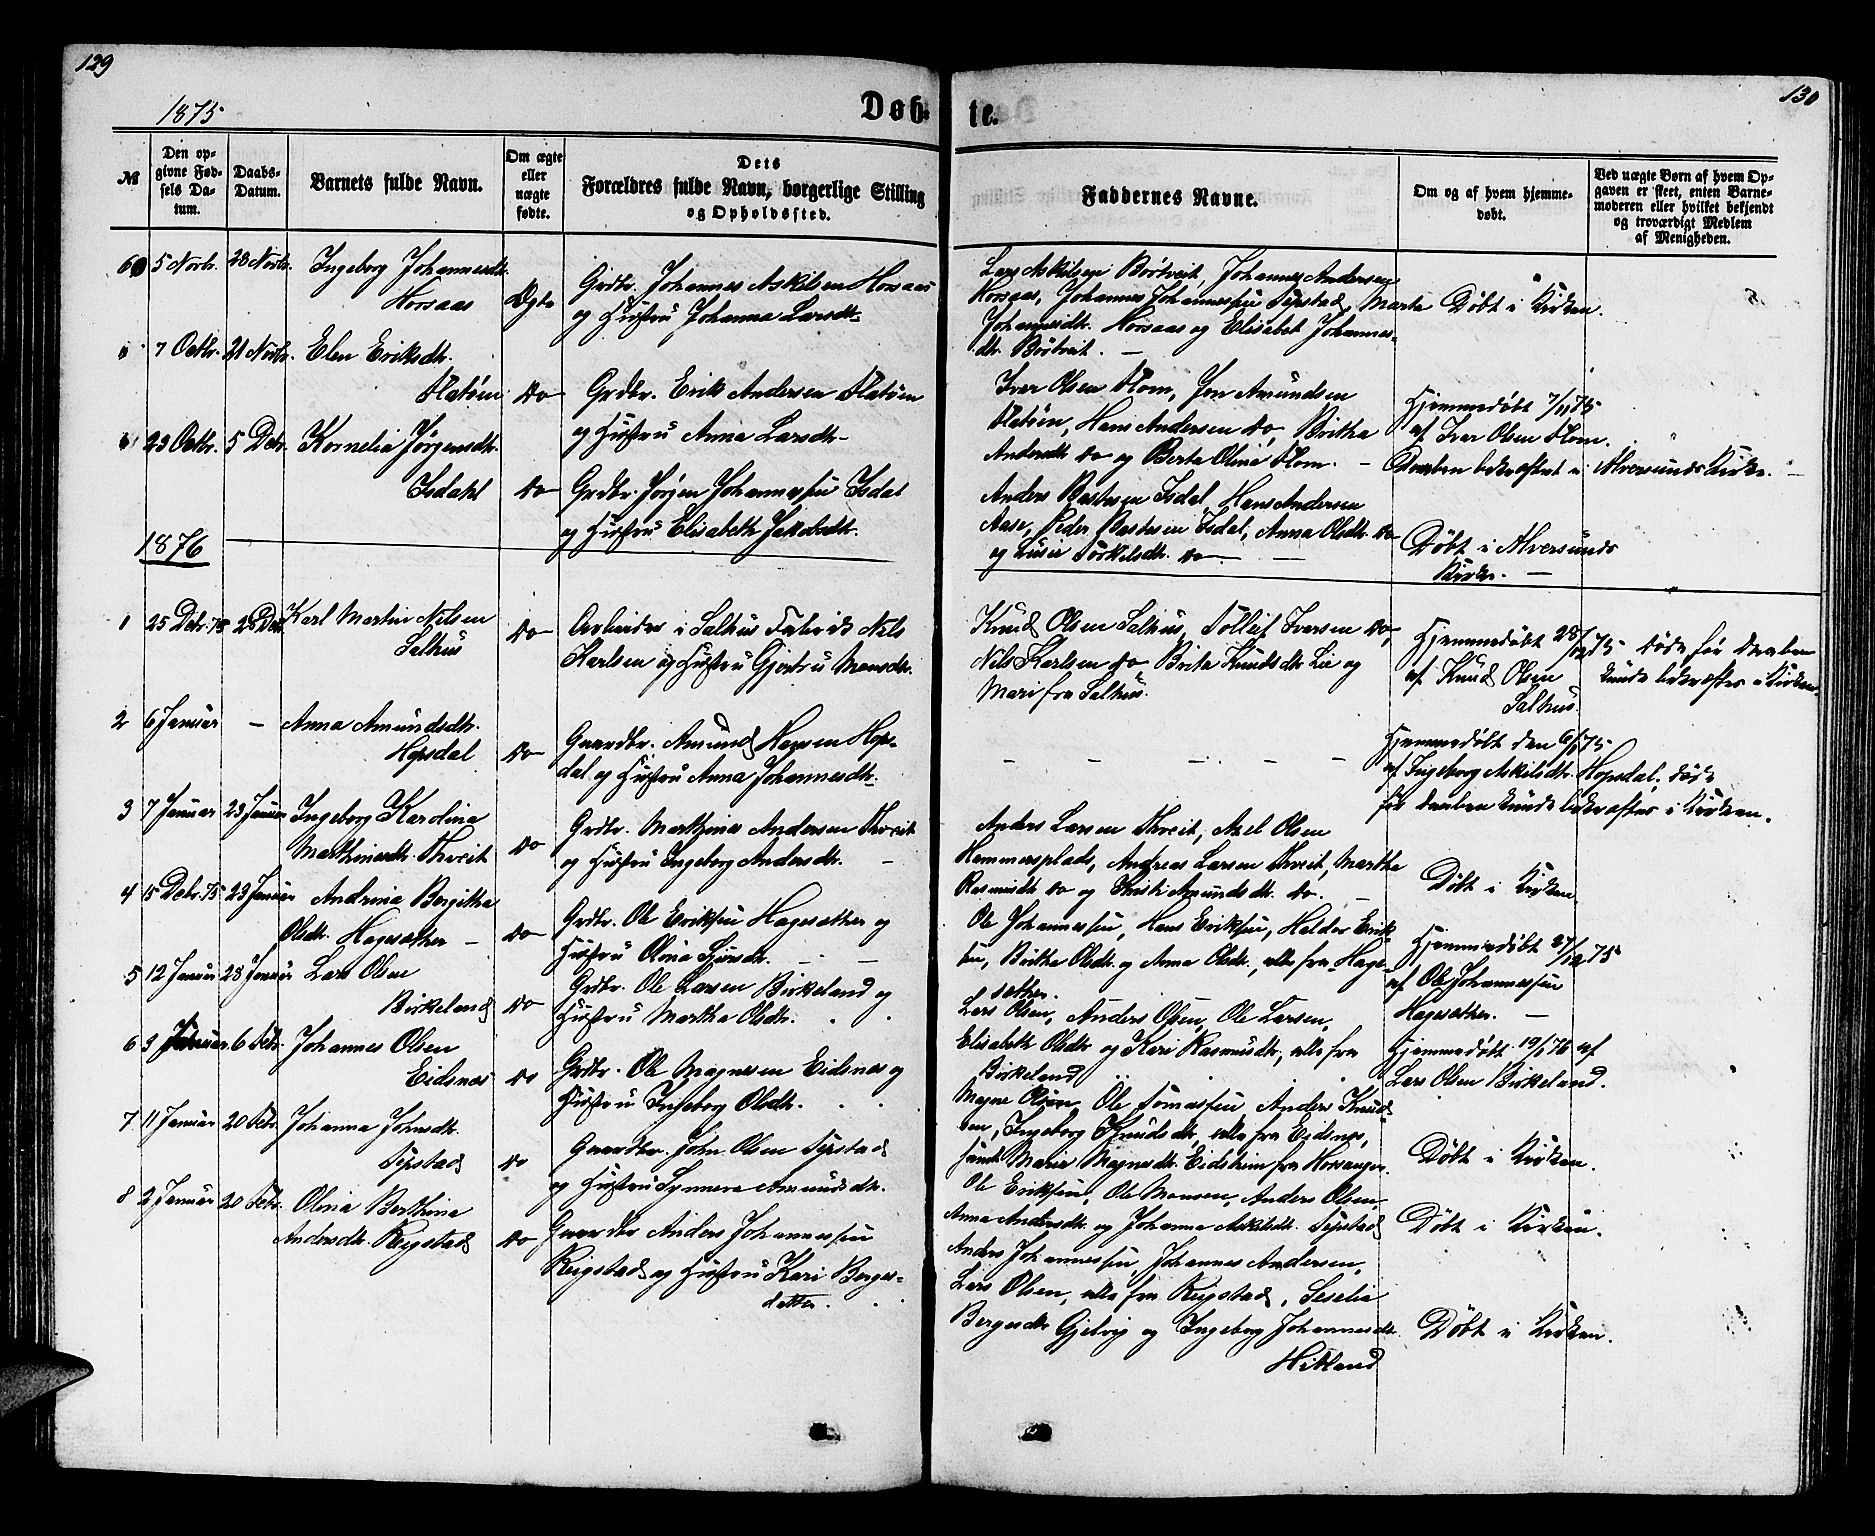 129
130
1875
Døb-
te.
№
Den op-
givne Fød-
sels Da-
tum.
Daabs-
Datum.
Barnets fulde Navn.
Om ægte
eller
uægte
fødte.
Dets
Forældres fulde Navn, borgerlige Stilling
og Opholdssted.
Faddernes Navne.
Om og af hvem hjemme-
døbt.
Ved uægte Børn af hvem Op-
gaven er skeet, enten Barne-
moderen eller hvilket bekjendt
og troværdigt Medlem
af Menigheden.
5 Novbr. 28 Novbr. Ingeborg Johannesdtr.
Horsaas
Ægte
Grdbr. Johannes Askilsen Horsaas
og Hustru Johanna Larsdtr.
Lars Askilsen Börtveit, Johannes Andersen
Horsaas, Johannes Johannessen Typstad, Marta
Johannesdtr. Horsaas og Elisabet Johannes-
dtr. Börtveit. —
Døbt i Kirken.
7 Octbr. 21 Novbr. Elen Eriksdtr.
Flatöen
do
Grdbr. Erik Andersen Flatöen
og Hustru Anna Larsdtr.
Iver Olsen Flom, Jon Amundsen
Flatöen, Hans Andersen do, Britha
Andersdtr do og Berta Olina Flom. —
Hjemmedøbt 7/11 75
af Iver Olsen Flom.
Daaben bekræftet i Alversunds Kirke. —
23 Octbr. 5 Debr. Kornelia Jörgensdtr.
Isdahl
do
Grdbr. Jörgen Johannessen Isdal
og Hustru Elisabeth Jakobsdtr.
Anders Bastesen Isdal, Hans Andersen
Aase, Peder Bastesen Isdal, Anna Olsdtr. do
og Lusie Torkilsdtr. do. —
Døbt i Alversunds
Kirke. —
1876
1 25 Debr. 75 28 Debr. Karl Martin Nilsen
Salhus
do
Arbeider i Salhus Fabrik Nils
Karlsen og Hustru Gjertru Monsdtr.
Knud Olsen Salhus, Tolleif Iversen do,
Nils Karlsen do Brita Knudsdtr Lie og
Mari fra Salhus.
Hjemmedøbt 28/12 75
af Knud Olsen
Salhus.
Døde før Daaben
kunde bekræftes i Kirken.
2 6 Januar — Anna Amundsdtr.
Hopsdal
do
Gaardbr. Amund Hansen Hop-
dal og Hustru Anna Johannesdtr.
— — — — —
Hjemmedøbt den 6/1 75
af Ingeborg Askilsdtr. Hopsdal, døde
før Daaben kunde bekræftes i Kirken.
3 7 Januar 23 Januar Ingeborg Karolina
Marthinesdtr. Thveit
do
Grdbr. Marthines Andersen Thveit
og Hustru Ingeborg Andersdtr. —
Anders Larsen Thveit, Axel Olsen
Hammersplads, Andreas Larsen Thveit, Martha
Rasmusdtr do og Kristi Amundsdtr. do.
Døbt i Kirken
4 15 Debr. 75 23 Januar Andrina Bergitha
Olsdtr. Hagesæther —
do
Grdbr. Ole Eriksen Hagesæther og
Hustru Olina Sjursdtr. — —
Ole Johannessen, Hans Eriksen, Haldor Erik-
sen, Britha Olsdtr. og Anna Olsdtr., alle fra Hage-
sæther.
Hjemmedøbt 27/12 75
af Ole Johannessen
Hagesæther. —
5 12 Januar 28 Januar Lars Olsen
Birkeland
do
Grdbr. Ole Larsen Birkeland og
Hustru Martha Olsdtr.
Lars Olsen, Anders Olsen, Ole Larsen,
Elisabeth Olsdtr og Kari Rasmusdtr, alle fra
Birkeland
Hjemmedøbt 19/1 76 af
Lars Olsen Birkeland.
6 3 Januar 6 Febr. Johannes Olsen
Eidsnes
do
Grdbr. Ole Magnesen Eidsnes og
Hustru Ingeborg Olsdtr.
Magne Olsen, Ole Tomassen, Anders Knud-
sen, Ingeborg Knudsdtr, alle fra Eidsnes,
samt Maria Magnesdtr. Eidsheim fra Hosanger.
Døbt i Kirken.
7 11 Januar 20 Febr. Johanna Johnsdtr.
Typstad
do
Gaardbr. John Olsen Typstad
og Hustru Synneva Amundsdtr.
Ole Eriksen, Ole Monsen, Anders Olsen,
Anna Andersdtr. og Johanna Askilsdtr. Typstad
Døbt i Kirken.
8 2 Januar 20 Febr. Olina Berthina
Andersdtr. Rigstad
do
Gaardbr Anders Johannessen
Rigstad og Hustru Kari Berges-
datter.
Anders Johannessen, Johannes Andersen,
Lars Olsen, alle fra Rigstad, Seselia
Bergesdtr Gjelvig og Ingeborg Johannesdtr.
Hitland
Døbt i Kirken.